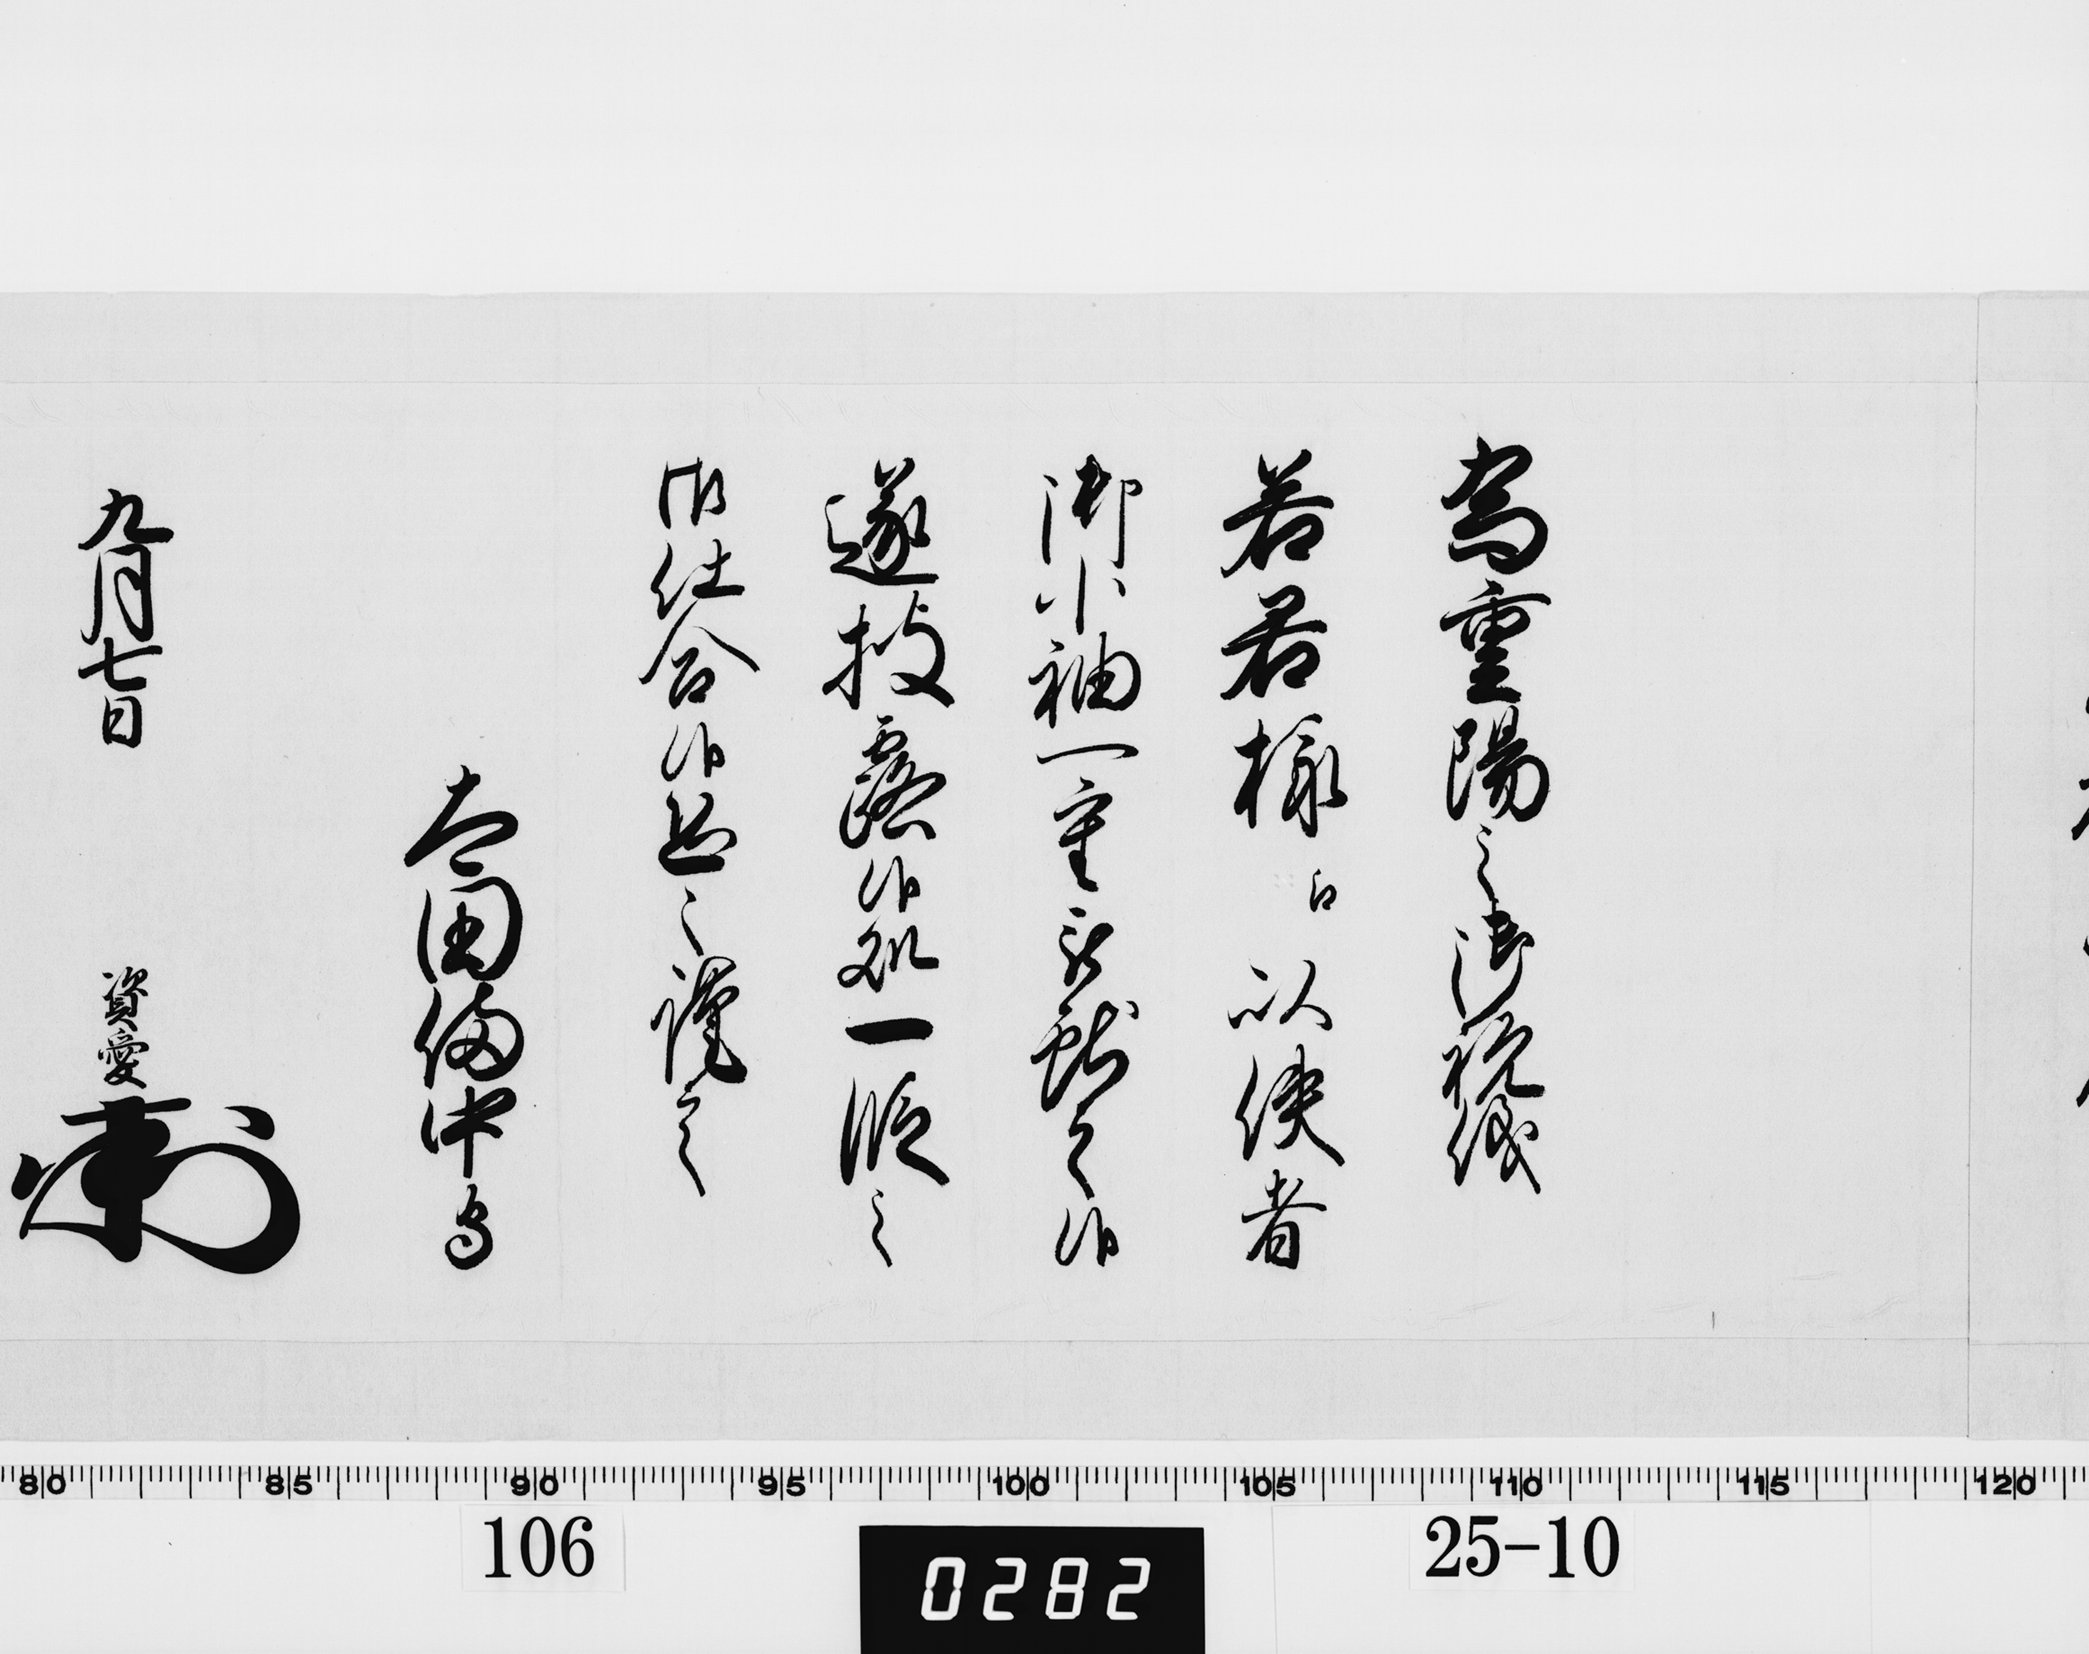 為重陽之御祝儀
若君様江以使者
御小袖一重被献之候
遂披露候処一段之
御仕合候恐々謹言
太田備中守
九月七日 資愛
80 85 90 95 100 105 110 115 120
106
0282
25-10